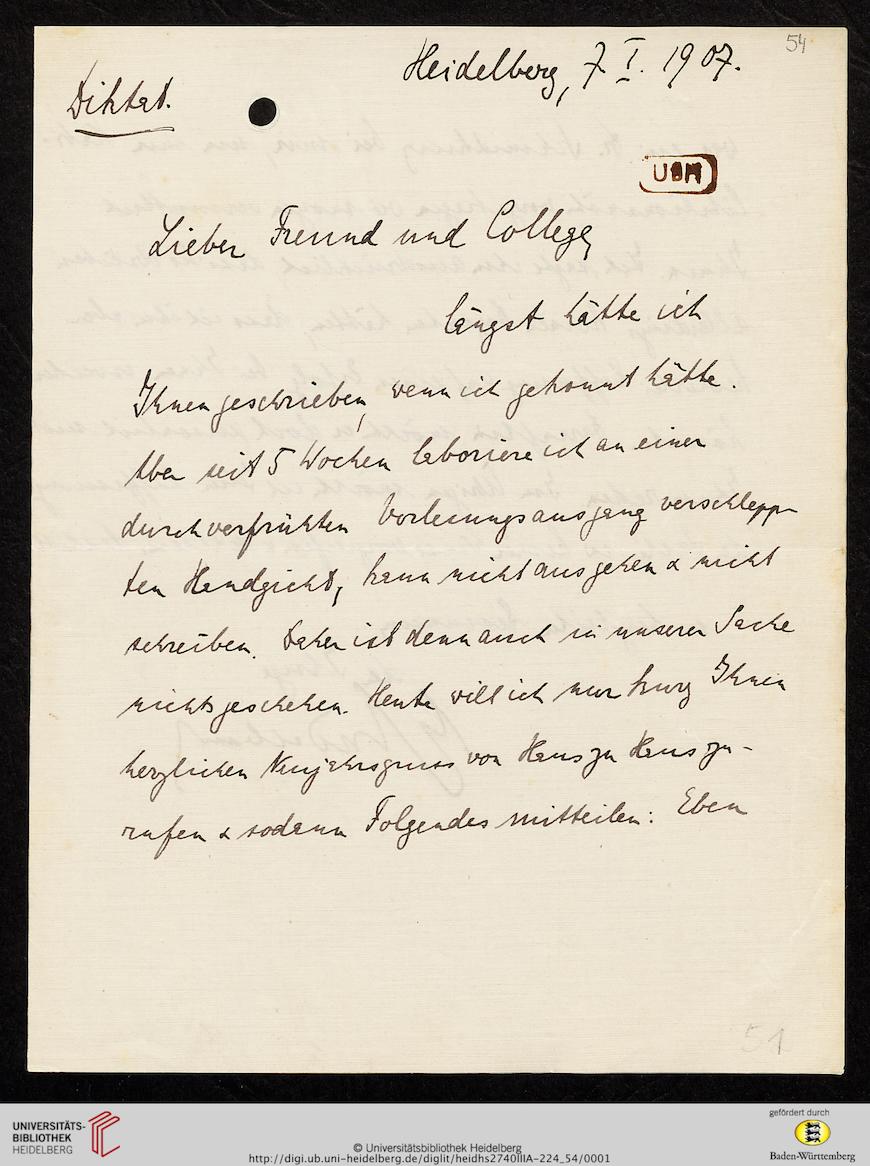 54
Heidelberg, 7. I. 1907.
Diktat.
UBH
Lieber Freund und College,
längst hätte ich
Ihnen geschrieben, wenn ich gekonnt hätte.
Aber seit 5 Wochen laboriere ich an einer
durch verfrühten Vorlesungsausgang verschlepp-
ten Handgicht, kann nicht ausgehen & nicht
schreiben. Daher ist denn auch in unserer Sache
nichts geschehen. Heute will ich nur kurz Ihnen
herzlichen Neujahrsgruss von Haus zu Haus zu-
rufen & sodann Folgendes mitteilen: Eben
51
UNIVERSITÄTS-
BIBLIOTHEK
HEIDELBERG
© Universitätsbibliothek Heidelberg
http://digi.ub.uni-heidelberg.de/diglit/heidhs2740IIIA-224_54/0001
gefördert durch
Baden-Württemberg